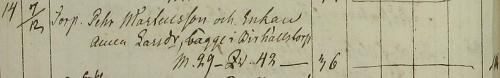 14 7/12 Torp. Pehr Martensson och Enkan
Anna Larsdr, bägge i
M. 29 - Qv. 42 — 36